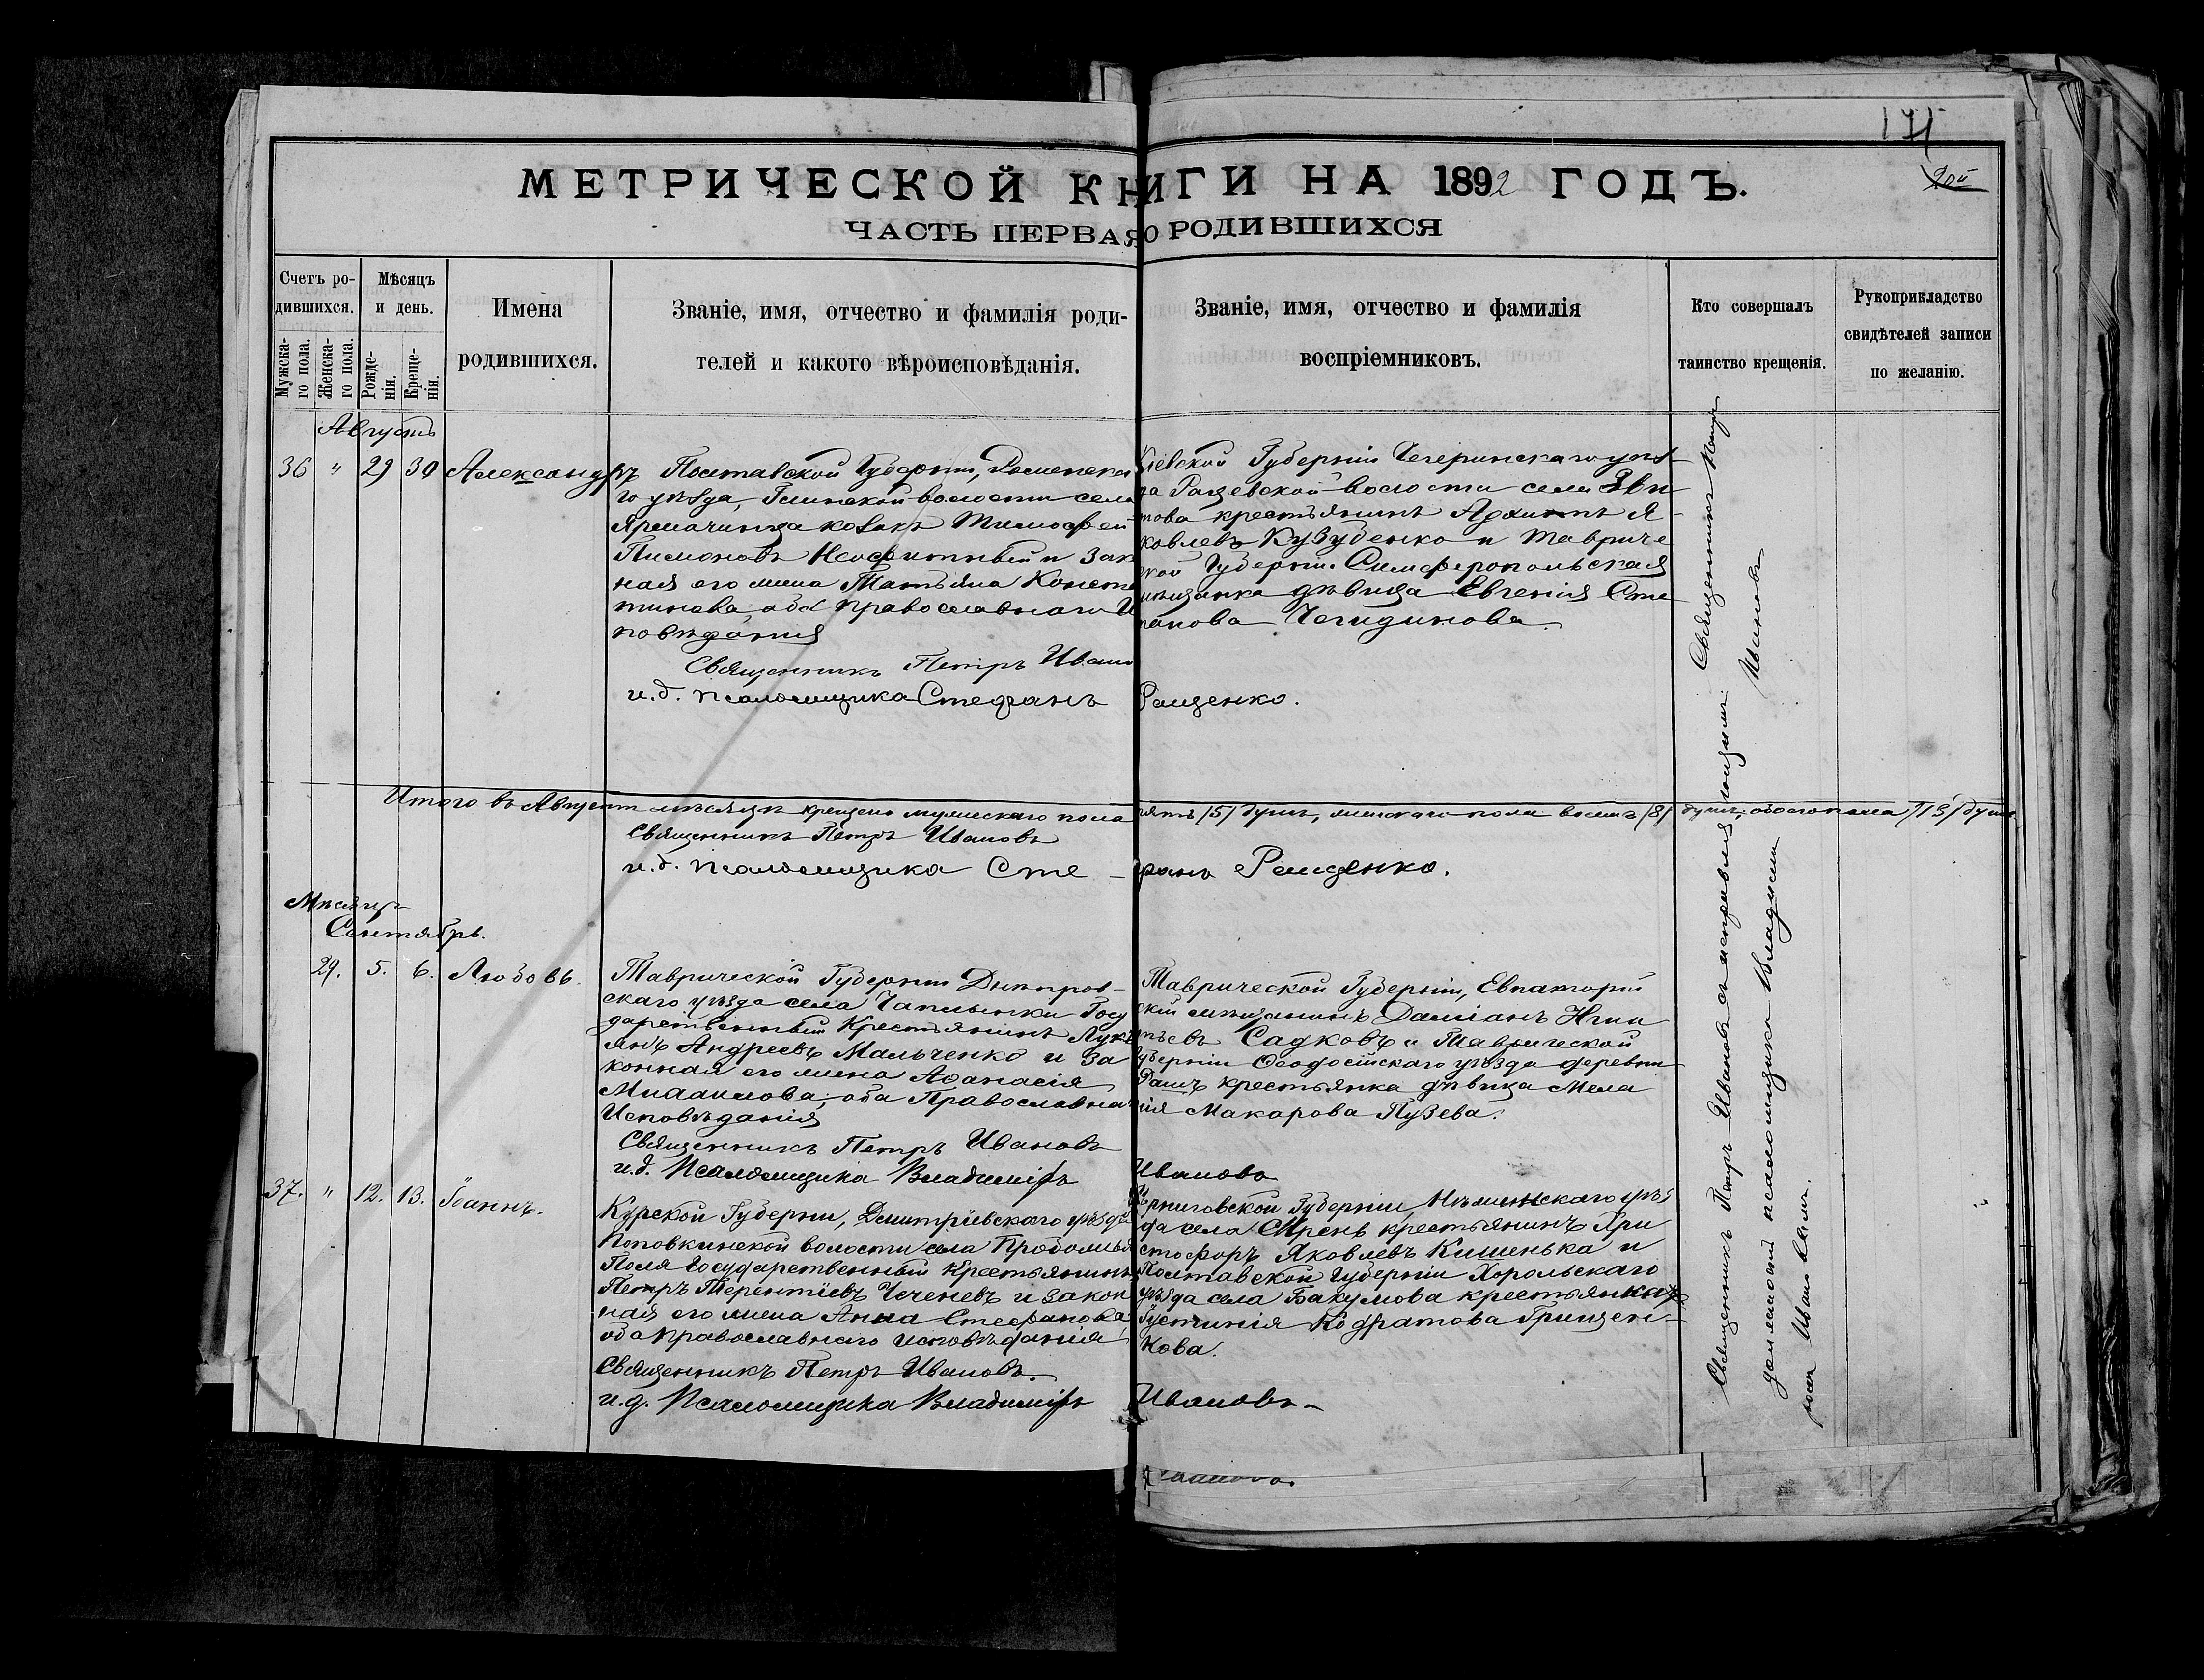 171
МЕТРИЧЕСКОЙ КНИГИ НА 1892 ГОДЪ.
ЧАСТЬ ПЕРВАЯ О РОДИВШИХСЯ
Счетъ ро-
дившихся.
Мужска-
го пола.
Женска-
го пола.
Мѣсяцъ
и день.
Рожде-
нія.
Креще-
нія.
Имена
родившихся.
Званіе, имя, отчество и фамилія роди-
телей и какого вѣроисповѣданія.
Званіе, имя, отчество и фамилія
воспріемниковъ.
Кто совершалъ
таинство крещенія.
Рукоприкладство
свидѣтелей записи
по желанію.
Августъ
36 " 29 30 Александръ
Полтавской Губерніи, Роменска
го уѣзда, Глинской волости села
Ярмачинца козакъ Тимофей
Пимоновъ Неофитный и Зак
ная его жена Татьяна Конста
тинова, оба православнаго И
повѣданія
Священникъ Петръ Ивано
и.д. псаломщика Стефанъ Ращенко.
Кіевской Губерніи Чегеринскаго уѣз-
да Рацевской волости села
крестьянинъ Я-
ковлевъ Кузуденко и Тавриче
ской Губерніи Симферопольская
мѣщанка дѣвица Евгенія Сте
панова Чегидинова.
Итого въ Августѣ мѣсяцѣ крещено мужескаго пола пять /5/ душъ, женскаго пола восемь /8/ душъ, обоего пола /13/ душъ.
Священникъ Петръ Ивановъ
и.д. псаломщика Сте-фанъ Ращенко.
Мѣсяцъ
Сентябрь.
29. 5. 6. Любовь.
Таврической Губерніи Днѣпров-
скаго уѣзда села Чаплынки Госу
дарственный Крестьянинъ Лукі
янъ Андреевъ Мальченко и За
конная его жена Афанасія
Михаилова, оба Православна
Исповѣданія
Священникъ Петръ Ивановъ
и.д. Псаломщика Владиміръ Ивановъ
Таврической Губерніи, Евпаторій
скій мѣщанинъ Даміанъ Игна
тьевъ Садковъ и Таврической
Губерніи Ѳеодосійскаго уѣзда деревни
крестьянка дѣвица Мела
нія Макарова Пузева.
37. " 12. 13. Іоаннъ.
Курской Губерніи, Дмитріевскаго уѣзда
Поповкинской волости села
Поля Государственный Крестьянинъ
Петръ Терентіевъ Чеченевъ и закон
ная его жена Анна Стефанова,
оба православнаго исповѣданія
Священникъ Петръ Ивановъ.
и.д. Псаломщика Владиміръ Ивановъ-
Черниговской Губерніи, Нѣжинскаго уѣз
да села крестьянинъ Хри
стофоръ Яковлевъ Кишенька и
Полтавской Губерніи Хорольскаго
уѣзда села Бакумова крестьянка
Іустинія Кодратова Грищен-
кова.
Священникъ Петръ
Ивановъ
Священникъ Петръ Ивановъ съ исправляющимъ
должность псаломщика Владимі
ромъ Ивановымъ.